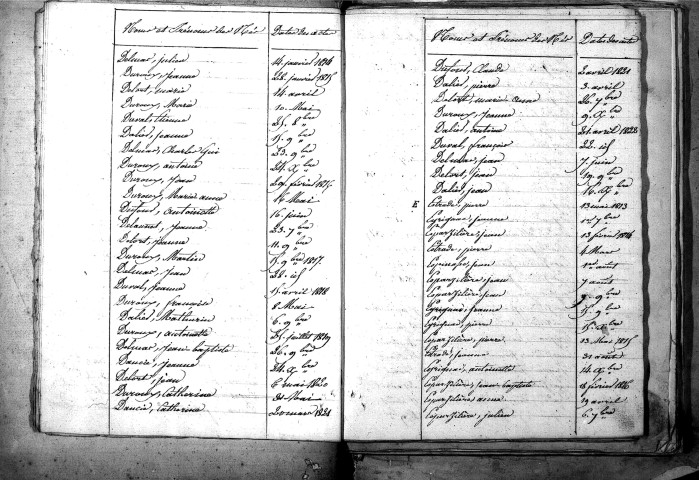 Noms et Prénoms des Nés Date des actes
Delmas, Julien 14 janvier 1814
Duroux, Jeanne 22 janvier 1815
Delort, Marie 14 avril
Duroux, Marie 10 Mai
Duval, Etienne 25. 8bre
Daliés, Jeanne 15. 9bre
Delmas, Charles 23. 9bre
Duroux, antoine 24. Xbre
Duroux, Jean 29 février 1816
Duroux, Marie anne 14 Mai
Dufour, antoinette 16 février
Jeanne 23. 7bre
Delort, Jeanne 11. 9bre
Duroux, Martin 15. 9bre 1817
Delmas, Jean 22. id
Duval, Jeanne 15 avril 1818
Duroux, françoise 8 Mai
Daliés, Mathurin 6. 9bre
Duroux, antoinette 25. juillet 1819
Delmas, Jean baptiste 26. 9bre
Daucié, Jeanne 24. Xbre
Delort, Jean 6 mai 1820
Duroux, Catherine 31 Mai
Daucié, Catherine 20 mars 1821
Noms et Prénoms des Nés Date des actes
Dufour, Claude 2 avril 1821
Daliés, pierre 3. avril
Delort, marie 26. 7bre
Duroux, Jeanne 9. Xbre
Daliés, antoine 21. avril 1822
Duval, françois 22. id
Delmas, Jean 7. juin
Delort, Jean 19. 9bre
Daliés, Jean 16. Xbre
E Estrade, pierre 13 mai 1813
Eyrignac, Jeanne 7bre
Esparzeliere, Jean 13 février 1814
Estrade, pierre 4 Mars
Jean août
Esparzeliere, Jean 7 août
Esparzeliere, Jean 9. 9bre
Eyrignac, Jeanne 15. 9bre
Eyrignac, pierre 15. Xbre
Esparzeliere, pierre 13 Mai 1815
Estrade, Jeanne 31 août
Eyrignac, antoinette 14. Xbre
Esparzeliere, Jean baptiste 18 février 1816
Esparzeliere, anne 19 avril
Esparzeliere, julien 6. 9bre